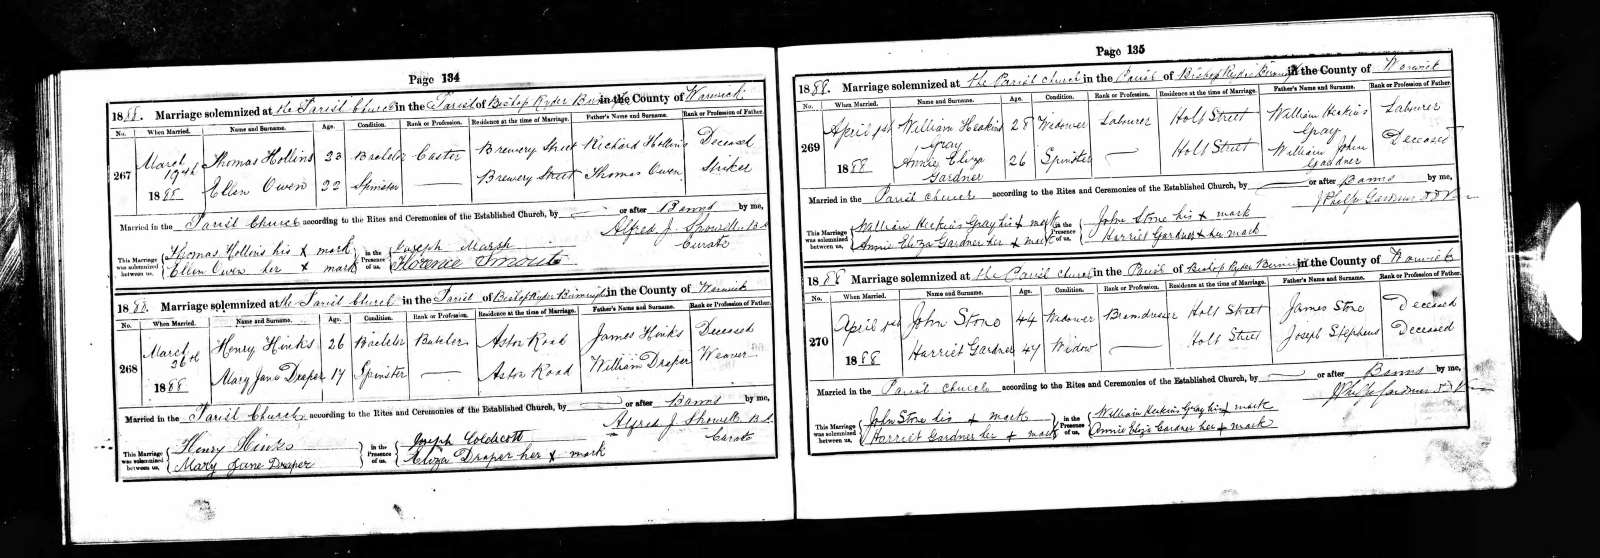 Page 134
1888. Marriage solemnized at the Parish Church in the Parish of Bishop Ryder in the County of Warwick.
No. When Married. Name and Surname. Age. Condition. Rank or Profession. Residence at the time of Marriage. Father's Name and Surname. Rank or Profession of Father.
267 March 19th 1888 Thomas Hollins 23 Bachelor Caster Brewery Street Richard Hollins Deceased
Ellen Owen 22 Spinster — Brewery Street Thomas Owen Striker
Married in the Parish Church according to the Rites and Ceremonies of the Established Church, by — or after Banns by me,
This Marriage was solemnized between us, Thomas Hollins his x mark in the Presence of us, Joseph Marsh Alfred J. B.A.
Ellen Owen her x mark Florence Smout Curate
1888. Marriage solemnized at the Parish Church in the Parish of Bishop Ryder Birmingham in the County of Warwick
No. When Married. Name and Surname. Age. Condition. Rank or Profession. Residence at the time of Marriage. Father's Name and Surname. Rank or Profession of Father.
268 March 26th 1888 Henry Hinks 26 Bachelor Aston Road James Hinks Deceased
Mary Jane Draper 17 Spinster — Aston Road William Draper Weaver
Married in the Parish Church according to the Rites and Ceremonies of the Established Church, by — or after Banns by me,
This Marriage was solemnized between us, Henry Hinks in the Presence of us, Joseph Coldicott Alfred J. B.A.
Mary Jane Draper Eliza Draper her x mark Curate
Page 135
1888. Marriage solemnized at the Parish Church in the Parish of Bishop Ryder in the County of Warwick
No. When Married. Name and Surname. Age. Condition. Rank or Profession. Residence at the time of Marriage. Father's Name and Surname. Rank or Profession of Father.
269 April 1st 1888 William Gray 28 Widower Labourer Holt Street William Gray Labourer
Annie Eliza Gardner 26 Spinster — Holt Street William John Gardner Deceased
Married in the Parish Church according to the Rites and Ceremonies of the Established Church, by — or after Banns by me,
This Marriage was solemnized between us, William Gray his x mark in the Presence of us, John Stone his x mark
Annie Eliza Gardner her x mark Harriet Gardner her mark
1888 Marriage solemnized at the Parish Church in the Parish of Bishop Ryder Birmingham in the County of Warwick
No. When Married. Name and Surname. Age. Condition. Rank or Profession. Residence at the time of Marriage. Father's Name and Surname. Rank or Profession of Father.
270 April 1st 1888 John Stone 44 Widower Holt Street James Stone Deceased
Harriet Gardner 47 Widow — Holt Street Joseph Stephens Deceased
Married in the Parish Church according to the Rites and Ceremonies of the Established Church, by — or after Banns by me,
This Marriage was solemnized between us, John Stone his x mark in the Presence of us, William Gray his x mark
Harriet Gardner her x mark Annie Eliza Gardner her x mark